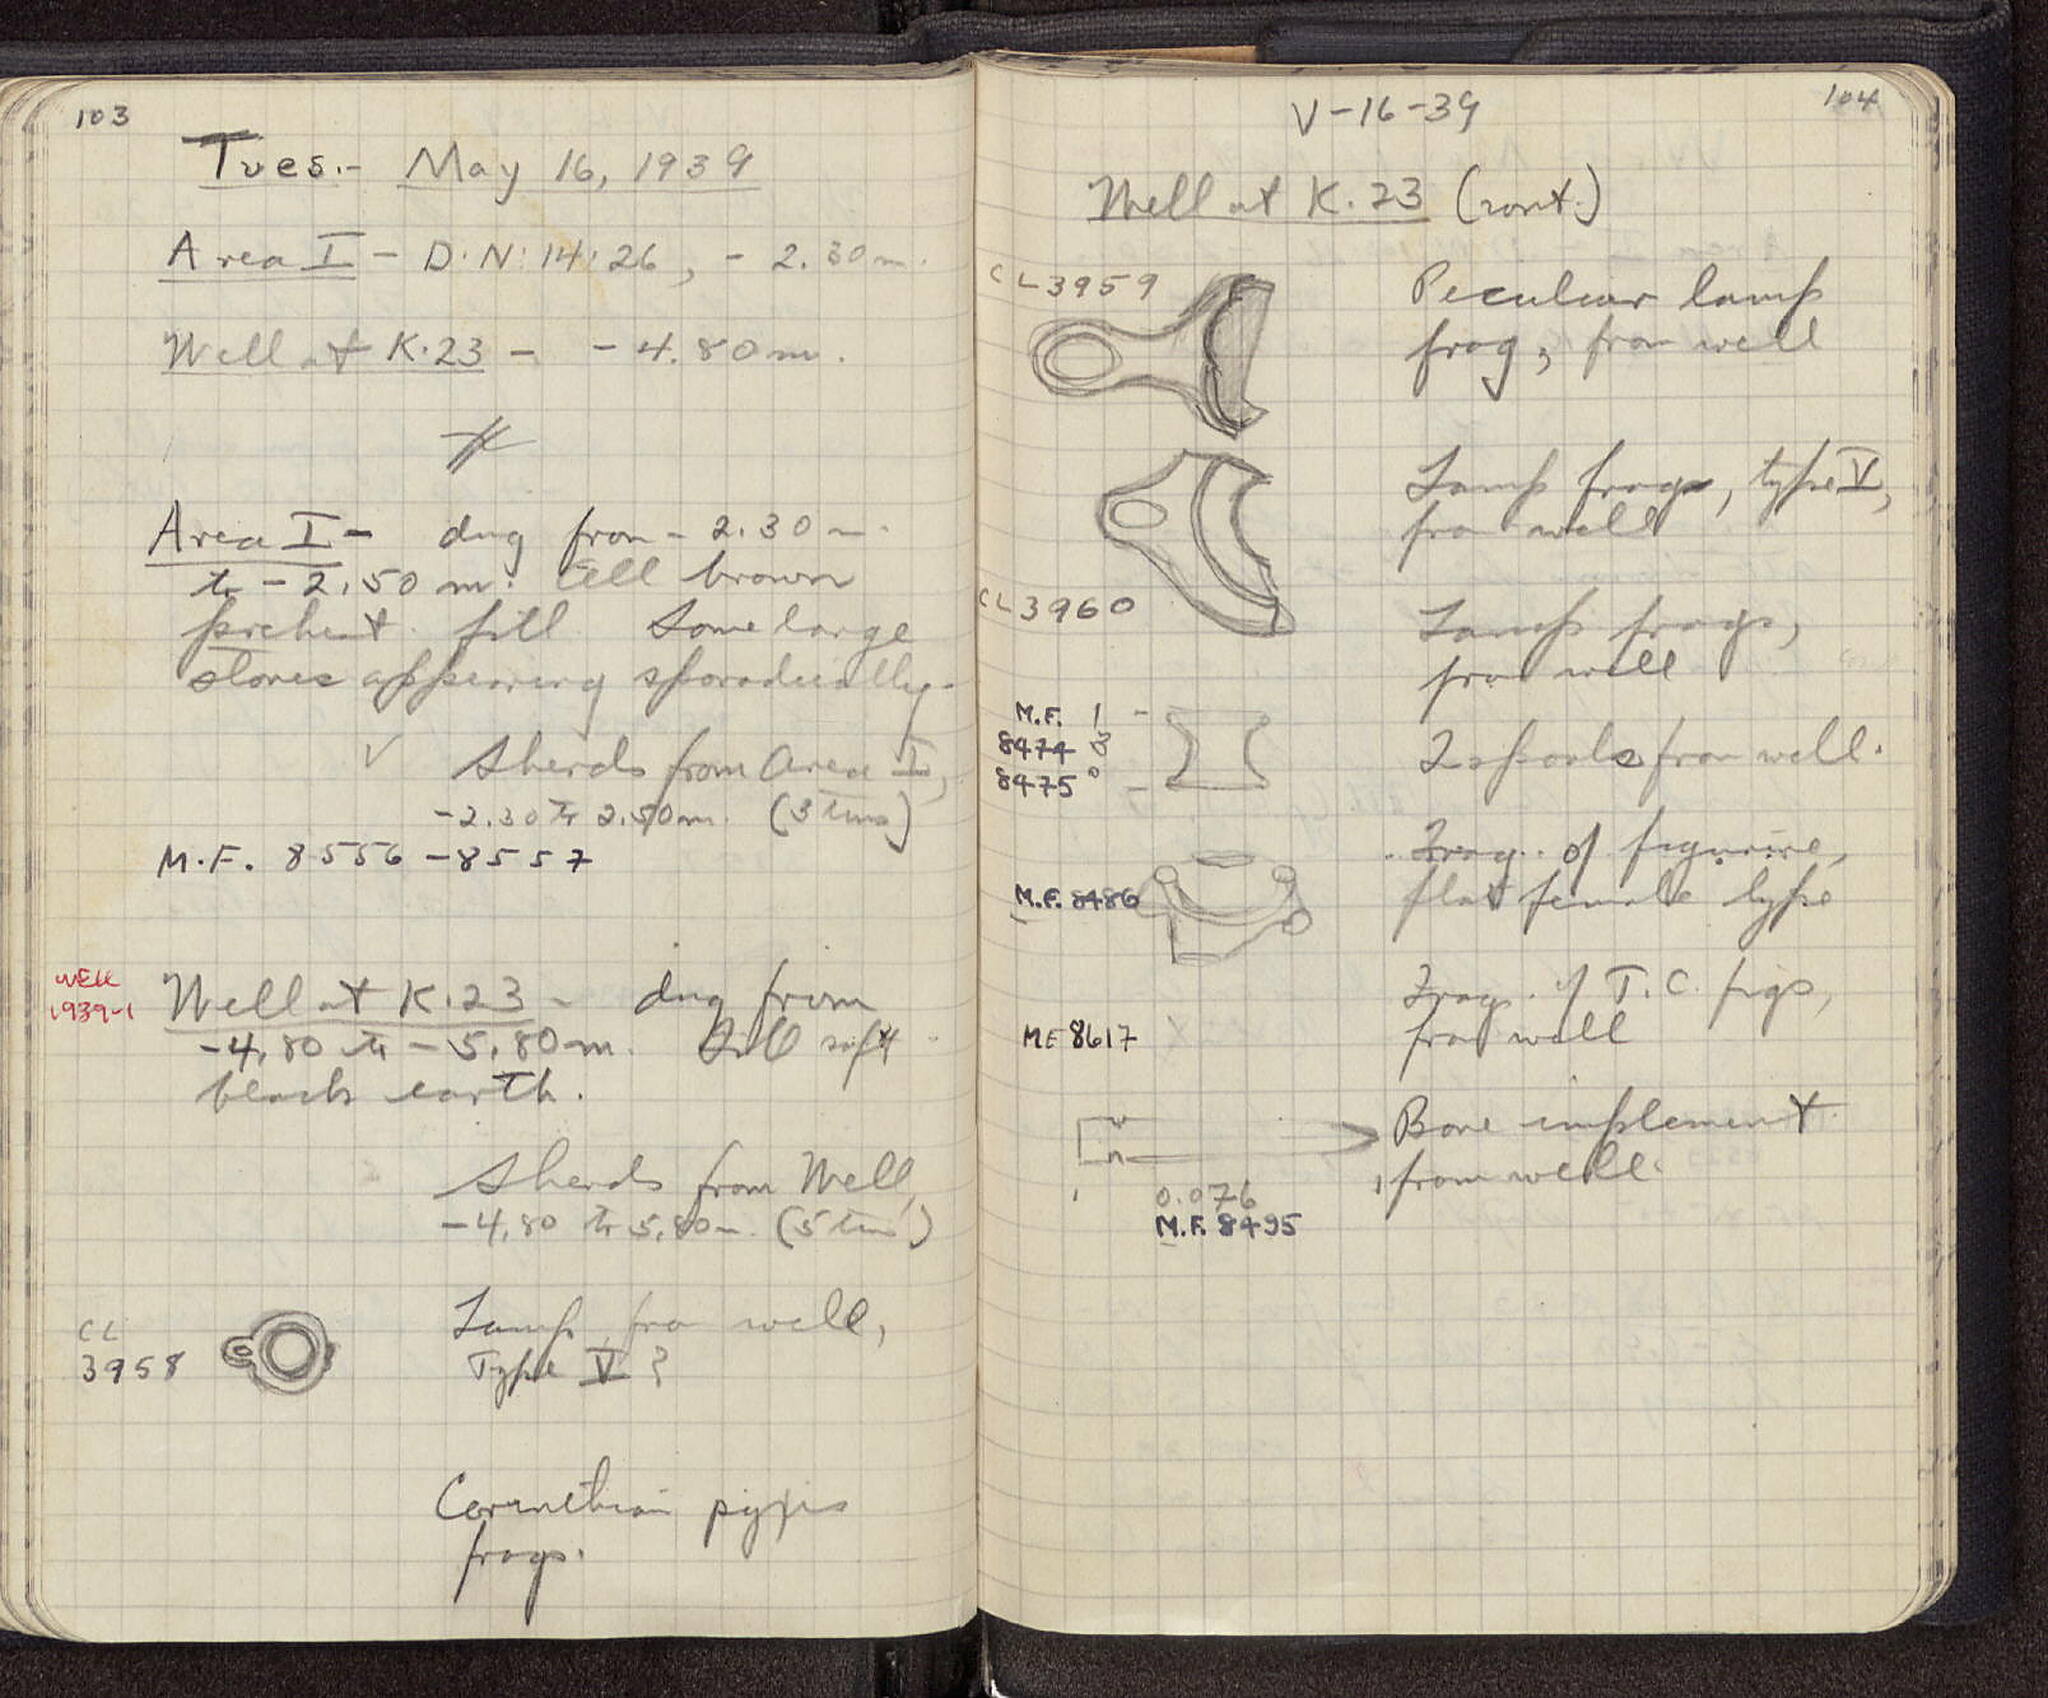 103
Tues.- May 16, 1939
Area I - D.N: 14:26, - 2.30 m.
Well at K.23 - - 4.80 m.
Area I - dug from - 2.30 m.
to - 2.50 m. all brown
prehist. fill. Some large
stones appearing sporadically.
Sherds from Area I,
-2.30 to 2.50 m. (3 tins)
M.F. 8556 - 8557
WELL
1939-1
Well at K.23 - dug from
-4.80 to - 5.80 m. Still soft
black earth.
Sherds from Well,
-4.80 to 5.80 m. (5 tins)
CL
3958
Lamp, from well,
Type V ?
Corinthian pyxis
frags.
V-16-39
104
Well at K.23 (cont.)
CL 3959
Peculiar lamp
frag, from well
Lamp frags, type V,
from well
CL 3960
Lamp frags,
from well
M.F.
8474
8475
2 spools from well.
Frag. of figurine,
flat female type
M.F. 8486
Frags. of T.C. figs,
from well
MF 8617
Bone implement
from well.
0.076
M.F. 8495